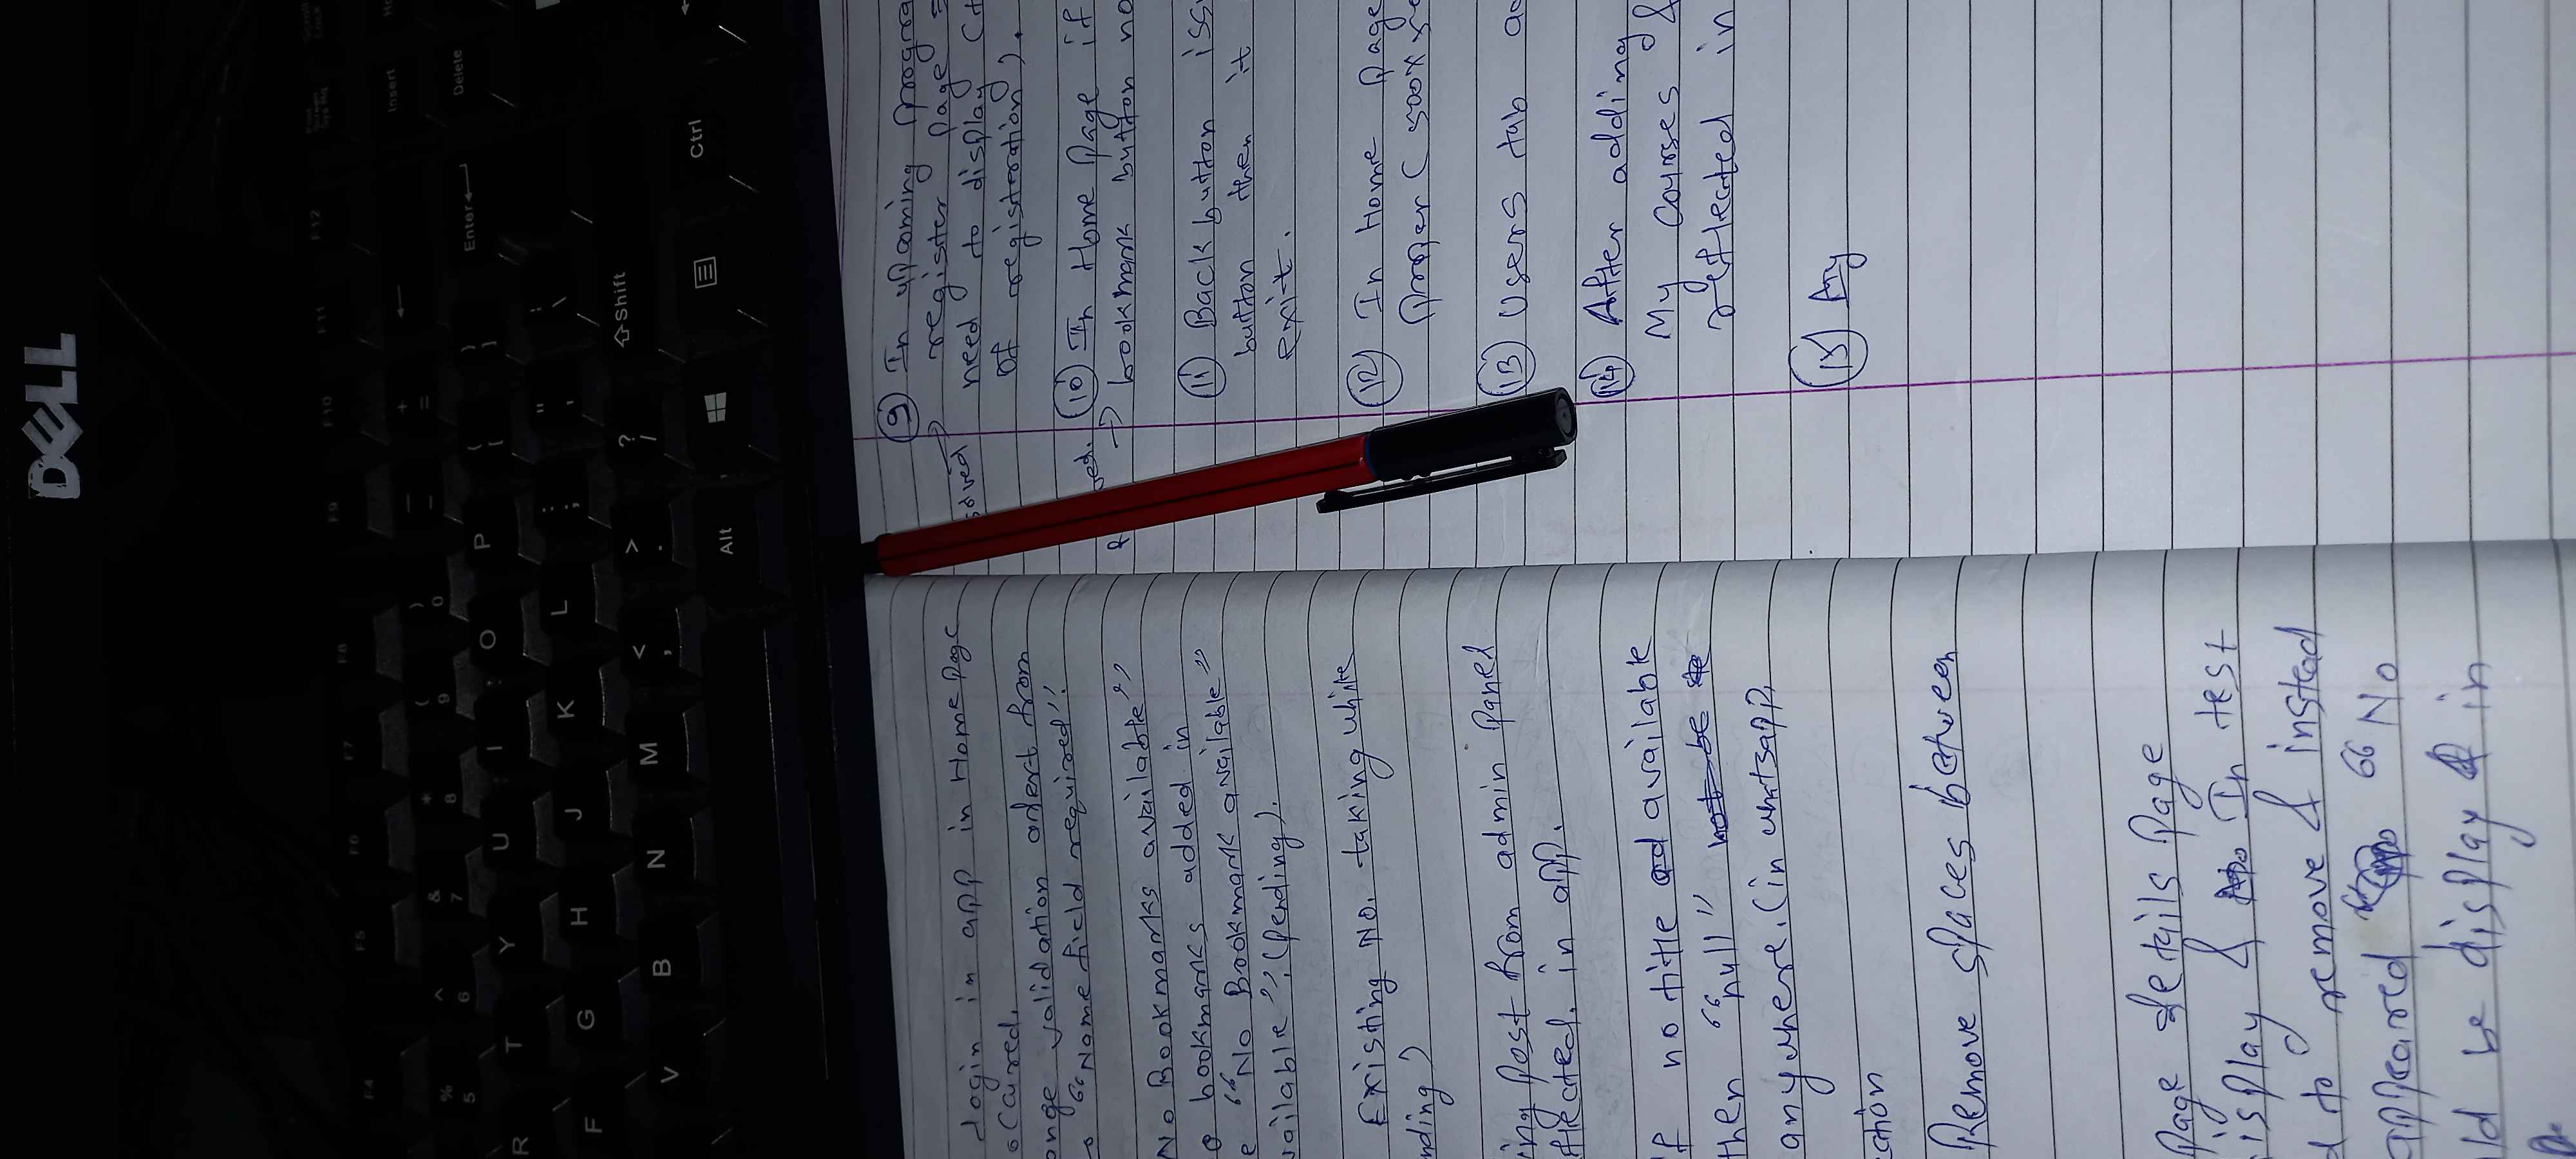 DELL
F4 F5 F6 F7 F8 F9 F10 F11 F12 Print Screen Sys Rq Scroll Lock
% 5 ^ 6 & 7 * 8 ( 9 ) 0 — - + = Insert
R T Y U I O P { [ } ] Enter Delete
F G H J K L : ; " ' | \
V B N M < , > . ? / Shift
Alt Ctrl
login in app in Home Page
occured.
ange validation alert from
"Name field required"
No Bookmarks available"
bookmarks added in
e "No Bookmark available"
vailable", (pending).
Existing No. taking white
nding)
ing Post from admin Panel
flected. in app.
if no title available
then "null"
anywhere. (in whatsapp,
ction
Remove spaces between
page details Page
isplay & In test
d to remove & instead
appeared "No
ld be display & in
9 In upcoming progra
solved → register page =
need to display (
of registeration).
10 In Home Page if
ved. → bookmark button no
11 Back button iss
button then it
exit.
12 In Home Page
proper (500x
13 Users tab ad
14 After adding
My Courses &
reflected in
15